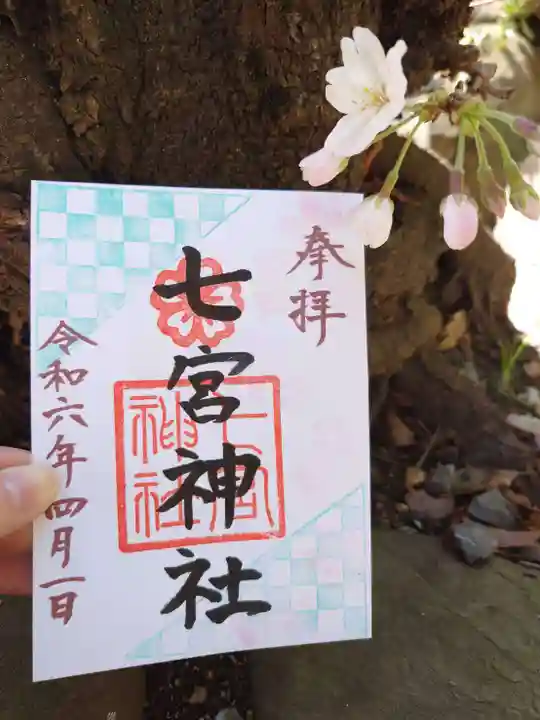 奉拝
七宮神社
七宮
神社
令和六年四月一日